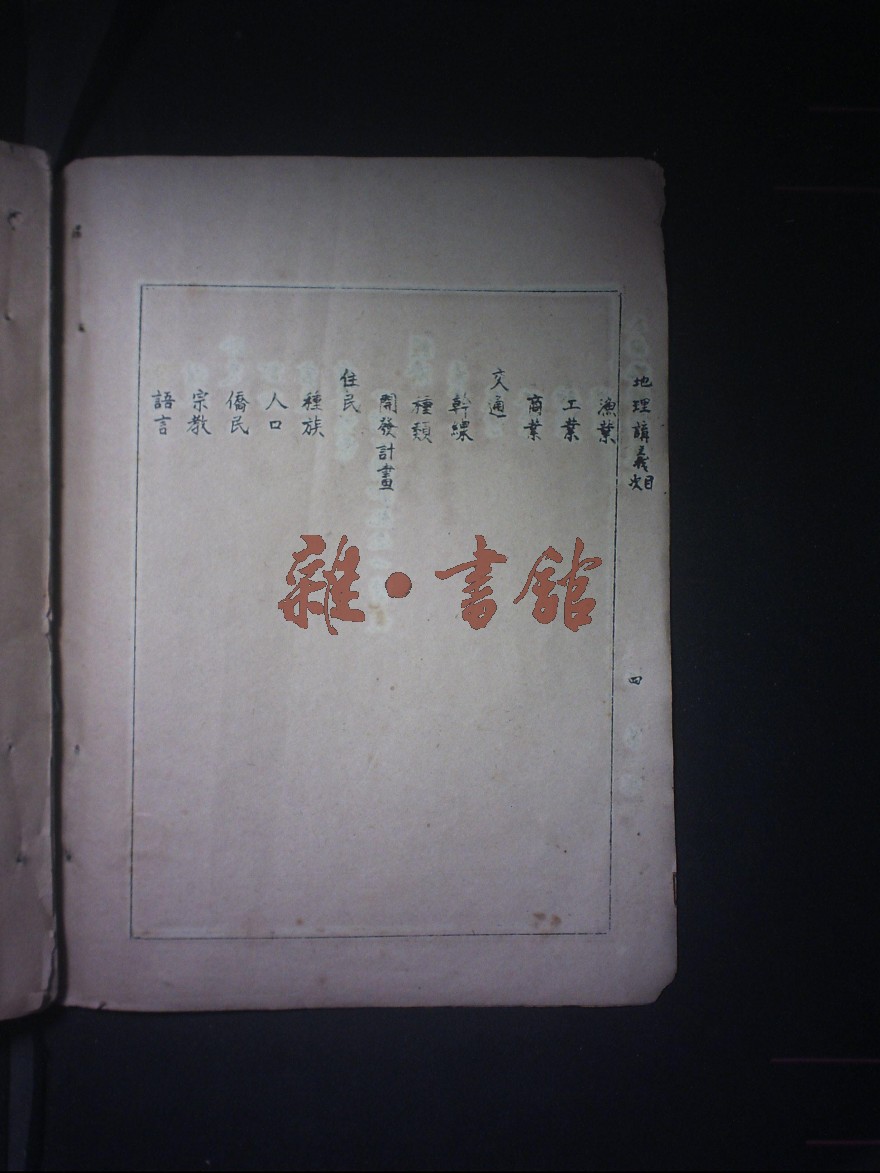 地理講義目次
四
漁業
工業
商業
交通
幹線
種類
開發計畫
住民
種族
人口
僑民
宗教
語言
雜·書館